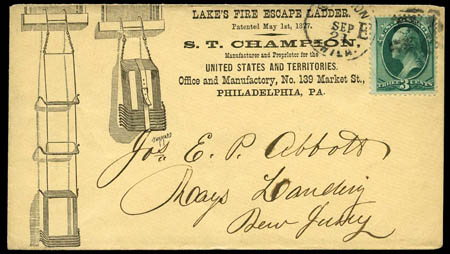 LAKE'S FIRE ESCAPE LADDER.
Patented May 1st, 1877.
S. T. CHAMPION,
Manufacturer and Proprietor for the
UNITED STATES AND TERRITORIES.
Office and Manufactory, No. 139 Market St.,
PHILADELPHIA, PA.
SEP
THREE 3 CENTS
Jos E. P. Abbotts
Mays Landing
New Jersey